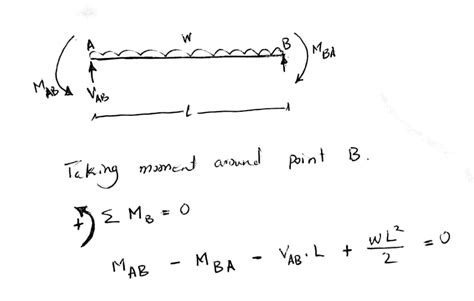 A W B
M_AB V_AB M_BA
L
Taking moment around point B.
+ Σ M_B = 0
M_AB - M_BA - V_AB . L + WL²/2 = 0